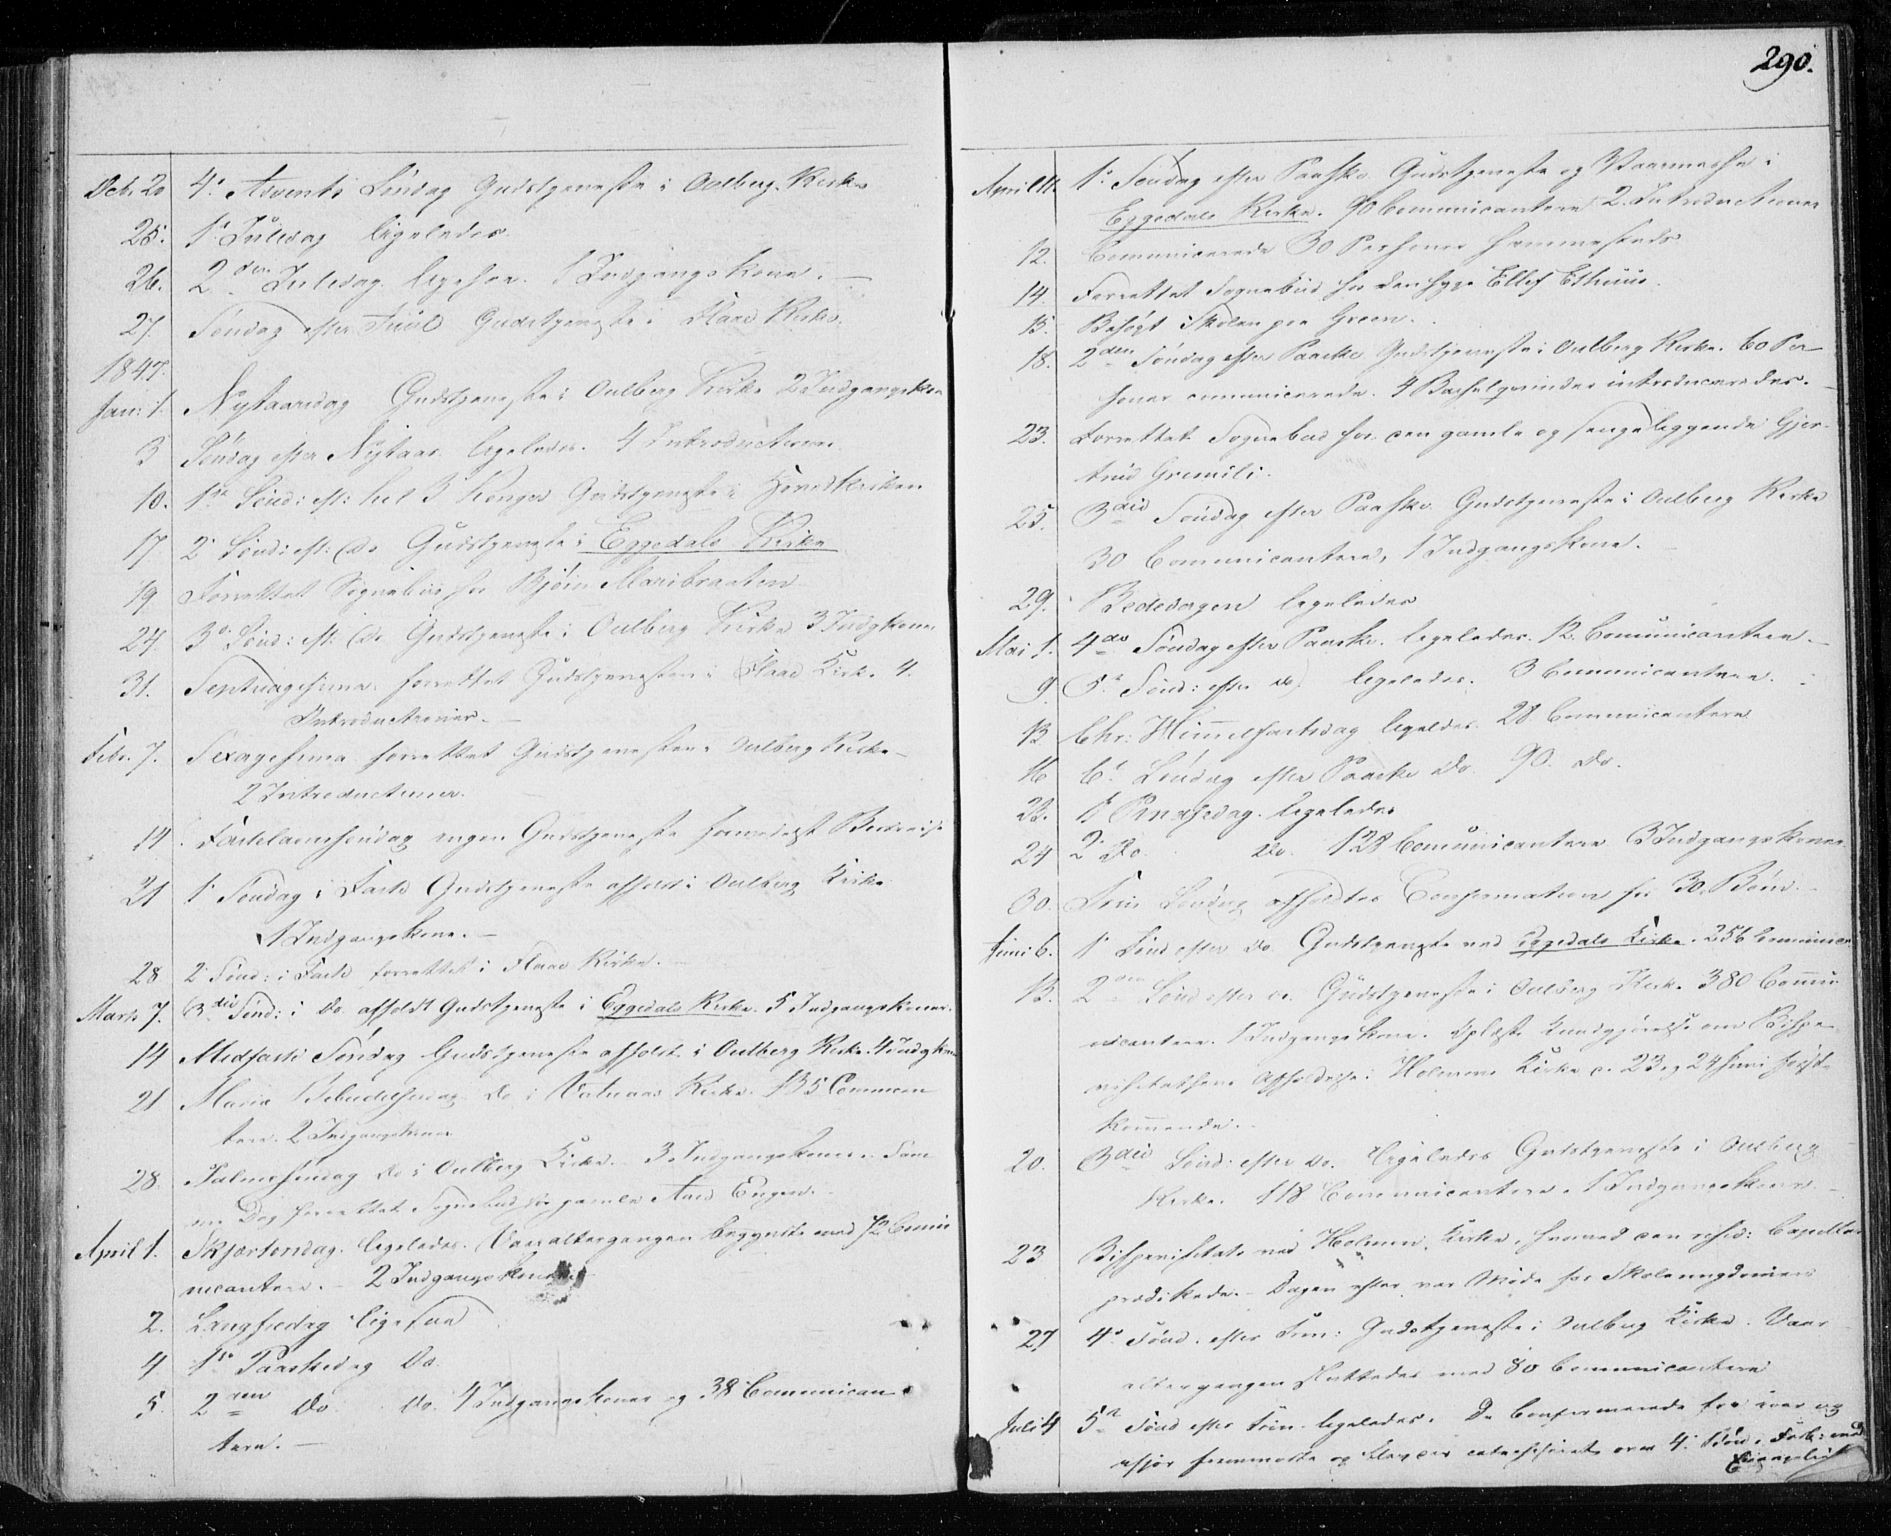 Dcb. 20 4. Advents Söndag Gudstjeneste i Oulberg Kirke
25. 1. Juledag ligeledes.
26. 2den Juledag ligesaa. 1 Indgangskone.
27. Söndag efter Juul Gudstjeneste i Flaae Kirke
1847.
Jan: 1. Nytaarsdag Gudstjeneste i Oulberg Kirke 2 Indgangskoner
3 Söndag efter Nytaar ligeledes. 4 Introductioner
10. 1ste Sönd: eft: hel 3 Konger Gudstjeneste i Hovedkirken
17. 2. Sönd: eft: do Gudstjeneste i Eggedals Kirke
19 Forrettet Sognebud for Björn Maribraaten
24. 3die Sönd: eft: do Gudstjeneste i Oulberg Kirke 3 Indgkoner
31. Septuagesima forrettet Gudstjenesten i Flaae Kirke 4
Introductioner.
Febr. 7. Sexagesima forrettet Gudstjenesten i Oulberg Kirke
2 Introductioner.
14 Fastelavnssöndag ingen Gudstjeneste formedelst
21 1 Söndag i Faste Gudstjeneste afholdt i Oulberg Kirke
1 Indgangskone.
28 2 Sönd: i Faste forrettet i Flaae Kirke.
Marts 7. 3die Sönd: i do afholdt Gudstjeneste i Eggedals Kirke. 5 Indgangskoner.
14 Midfaste Söndag Gudstjeneste afholdt i Oulberg Kirke. 4 Indgkoner
21 Mariæ Bebudelsesdag do i Kirke. 135 Communi
tere. 2 Indgangskoner
28. Palmesöndag do i Oulberg Kirke. 3 Indgangskoner. Sam
me Dag forrettet Sognebud for gamle Engen.
April 1. Skjærtorsdag. ligeledes. Vaaraltergangen begyndte med 72 Comu
nicantere. 2 Indgangskoner
2. Langfredag ligesaa
4 1ste Paaskedag do.
5. 2den do do. 4 Indgangskoner og 38 Communican
tere.
290.
April 11. 1. Söndag efter Paaske Gudstjeneste og Vaarmesse i
Eggedals Kirke. 90 Communicantere 2 Introductioner
12. Communicerede 30 Personer sammesteds
14. Forrettet Sognebud for den syge Ellef
15. Besögt Skolen paa Green.
18. 2den Söndag efter Paaske Gudstjeneste i Oulberg Kirke. 60 Per
soner communicerede. 4 Barselqvinder introduceredes.
23. Forrettet Sognebud for den gamle og sengeliggende Gjer
trud Gremili.
25. 3die Söndag efter Paaske Gudstjeneste i Oulberg Kirke
30 Communicantere, 1 Indgangskone.
29. Bededagen ligeledes
Mai 1. 4de Söndag efter Paaske. ligeledes. 12 Communicantere.
9. 5te Sönd: efter do. ligeledes. 3 Communicantere.
13 Chr: Himmelfartsdag ligeledes 28 Communicantere
16 6te Söndag efter Paaske do. 90. do.
23. 1 Pindsedag. ligeledes
24 2 do. do. 128 Communicantere 3 Indgangskoner
30. Trin Söndag afholdtes Confirmation for 30 Börn.
Juni 6. 1 Sönd efter do. Gudstjeneste ved Eggedals Kirke. 256 Communican
13. 2den Sönd efter do. Gudstjeneste i Oulberg Kirke 380 Commu
nicantere. 1 Indgangskone. Oplæste Kundgjörelse om Bispe
visitatsens Afholdelse i Holmens Kirke d. 23 og 24 Juni förste
kommende.
20. 3die Sönd: efter do. ligeledes Gudstjeneste i Oulberg
Kirke. 118 Communicantere. 1 Indgangskone.
23 Bispevisitats ved Holmen Kirke, hvorved den resid: Capellan
prædikede. Dagen efter var Möde for Skoleungdommen
27 4. Sönd. efter Trin: Gudstjeneste i Oulberg Kirke. Vaar
altergangen sluttedes med 80 Communicantere
Juli 4 5te Sönd efter Trin. ligeledes. De Confirmerede fra iaar og
ifjor fremmödte og bleve catechiserede over 4. Börn. Forb: med
Evangeliet